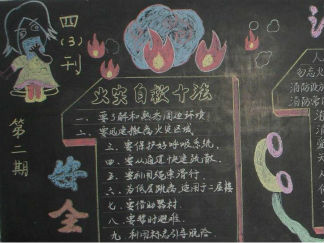 四(3)刊
第二期
安全
火灾自救十法
一、要了解和熟悉周边环境
二、要迅速撤离火灾区域
三、要保护好呼吸系统
四、要从通道快速疏散
五、要利用绳索滑行
六、为低层跳离,适用于二层楼
七、要借助器材
八、要暂时避难
九、利用标志引导脱险
人
勿忘火
消防设
消防